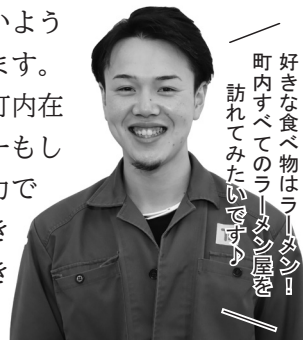 いよう
ます。
町内在
ーもし
力で
き
き
好きな食べ物はラーメン！
町内すべてのラーメン屋を
訪れてみたいです♪